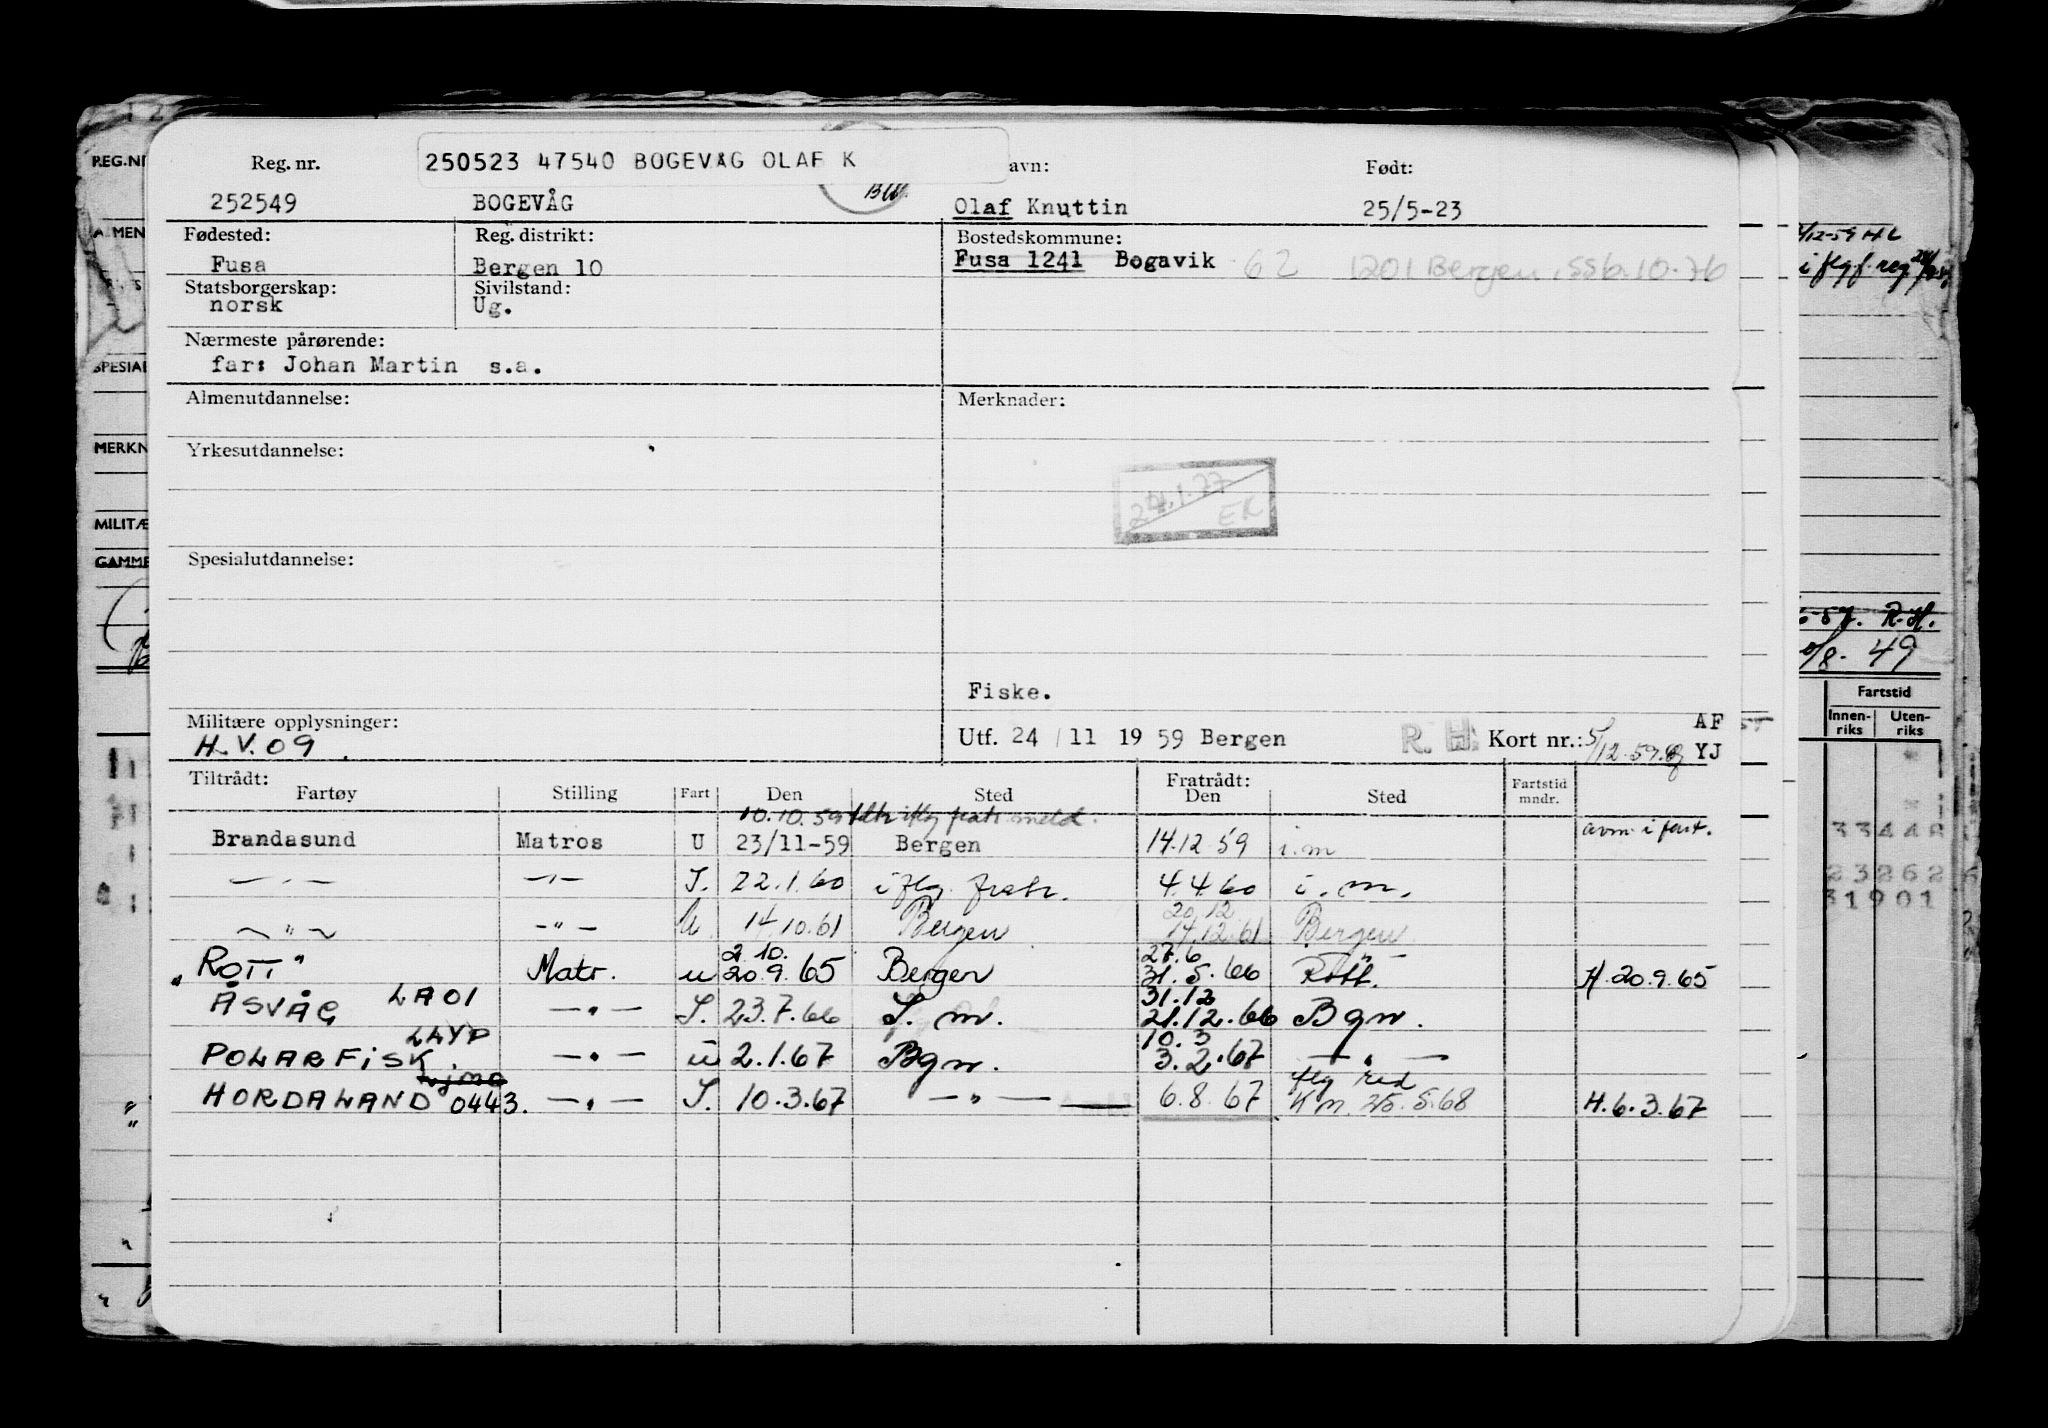 Reg. nr.
250523 47540 BOGEVÅG OLAF K
avn:
Født:
252549
BOGEVÅG
Olaf Knuttin
25/5-23
Fødested:
Reg. distrikt:
Bostedskommune:
Fusa
Bergen 10
Fusa 1241 Bogavik 62 1201 Bergen, SS 6.10.76
Statsborgerskap:
Sivilstand:
norsk
Ug.
Nærmeste pårørende:
far: Johan Martin s.a.
Almenutdannelse:
Merknader:
Yrkesutdannelse:
24.1.77
EK
Spesialutdannelse:
Fiske.
Militære opplysninger:
H.V. 09
Utf. 24/11 1959 Bergen
R. H.
Kort nr.: 5/12-59
AF
YJ
Tiltrådt:
Fratrådt:
Fartøy Stilling Fart Den Sted Den Sted Fartstid mndr.
10.10.59
Brandasund Matros U 23/11-59 Bergen 14.12.59 i.m
— . — — . — I. 22.1.60 i flg. fratr. 4.4.60 i. m.
20.12
— " — — " — U 14.10.61 Bergen 14.12.61 Bergen
2.10. 27.6
"ROTT" Matr. u 20.9.65 Bergen 31.5.66 Rott. H. 20.9.65
31.12
ÅSVÅG LAOI — " — I. 23.7.66 I. m. 21.12.66 Bgn.
LLYP 10.3
POLARFISK — " — u 2.1.67 Bgn. 3.2.67 — " —
flg red
HORDALAND 0443. — " — I. 10.3.67 — " — 6.8.67 Km. 25.5.68 H. 6.3.67
REG.NR
SPESIAL
MERKN
MILITÆ
GAMME
R.H.
/8. 49
Fartstid
Innen-riks
Uten-riks
33448
23262
31901